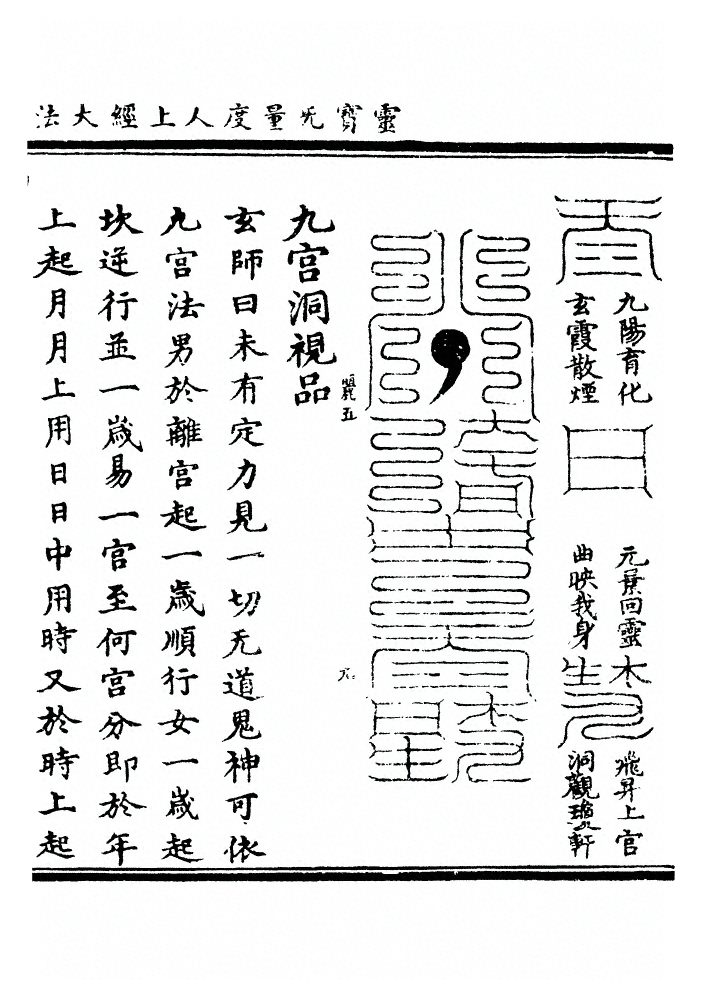 靈寶无量度人上經大法
九陽育化
玄霞散煙
元葉回靈
曲映我身
飛昇上宮
洞觀瓊軒
麗五
九宮洞視品
玄師曰未有定力見一切无道鬼神可依
九宮法男於離宮起一歲順行女一歲起
坎逆行並一歲易一宮至何宮分即於年
上起月月上用日日中用時又於時上起